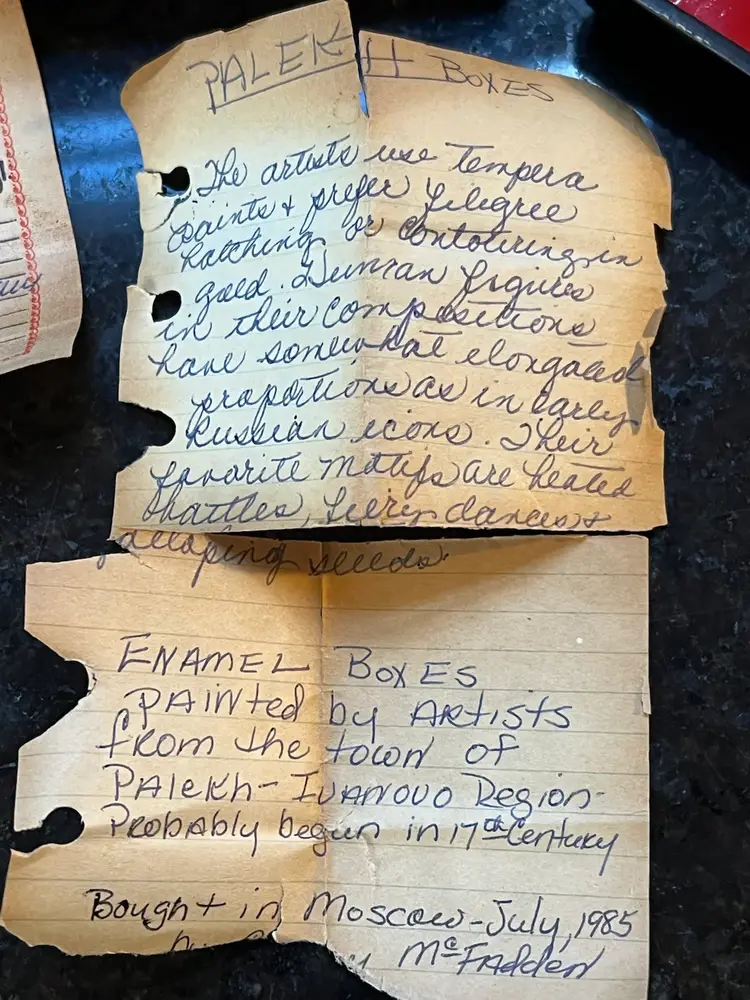 PALEKH BOXES
The artists use tempera
paints & prefer filegree
hatching or contouring in
gold. Human figures
in their compositions
have somewhat elongated
proportions as in early
Russian icons. Their
favorite motifs are heated
battles, fiery dances &
galloping steeds.
ENAMEL BOXES
PAINted by ARtists
from the town of
PALEKh - IVANOVO Region-
Probably begun in 17th Century
Bought in Moscow - July, 1985
McFadden